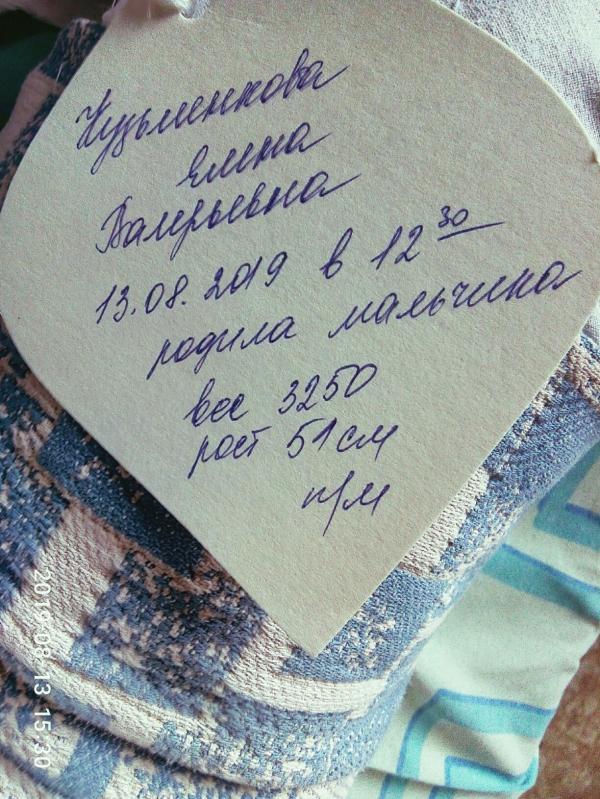 Кузьменкова
Елена
Валерьевна
13.08.2019 в 12 30
родила мальчика
вес 3250
рост 51 см
п/м
2019-08-13 15:30